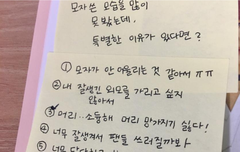 모자 쓴 모습을 많이
못 봤는데,
특별한 이유가 있다면?
① 모자가 안 어울리는 것 같아서 ㅠㅠ
② 내 잘생긴 외모를 가리고 싶지
않아서
③ 머리..소듕해 머리 망가지기 싫다!
④ 너무 잘생겨서 팬들 쓰러질까봐